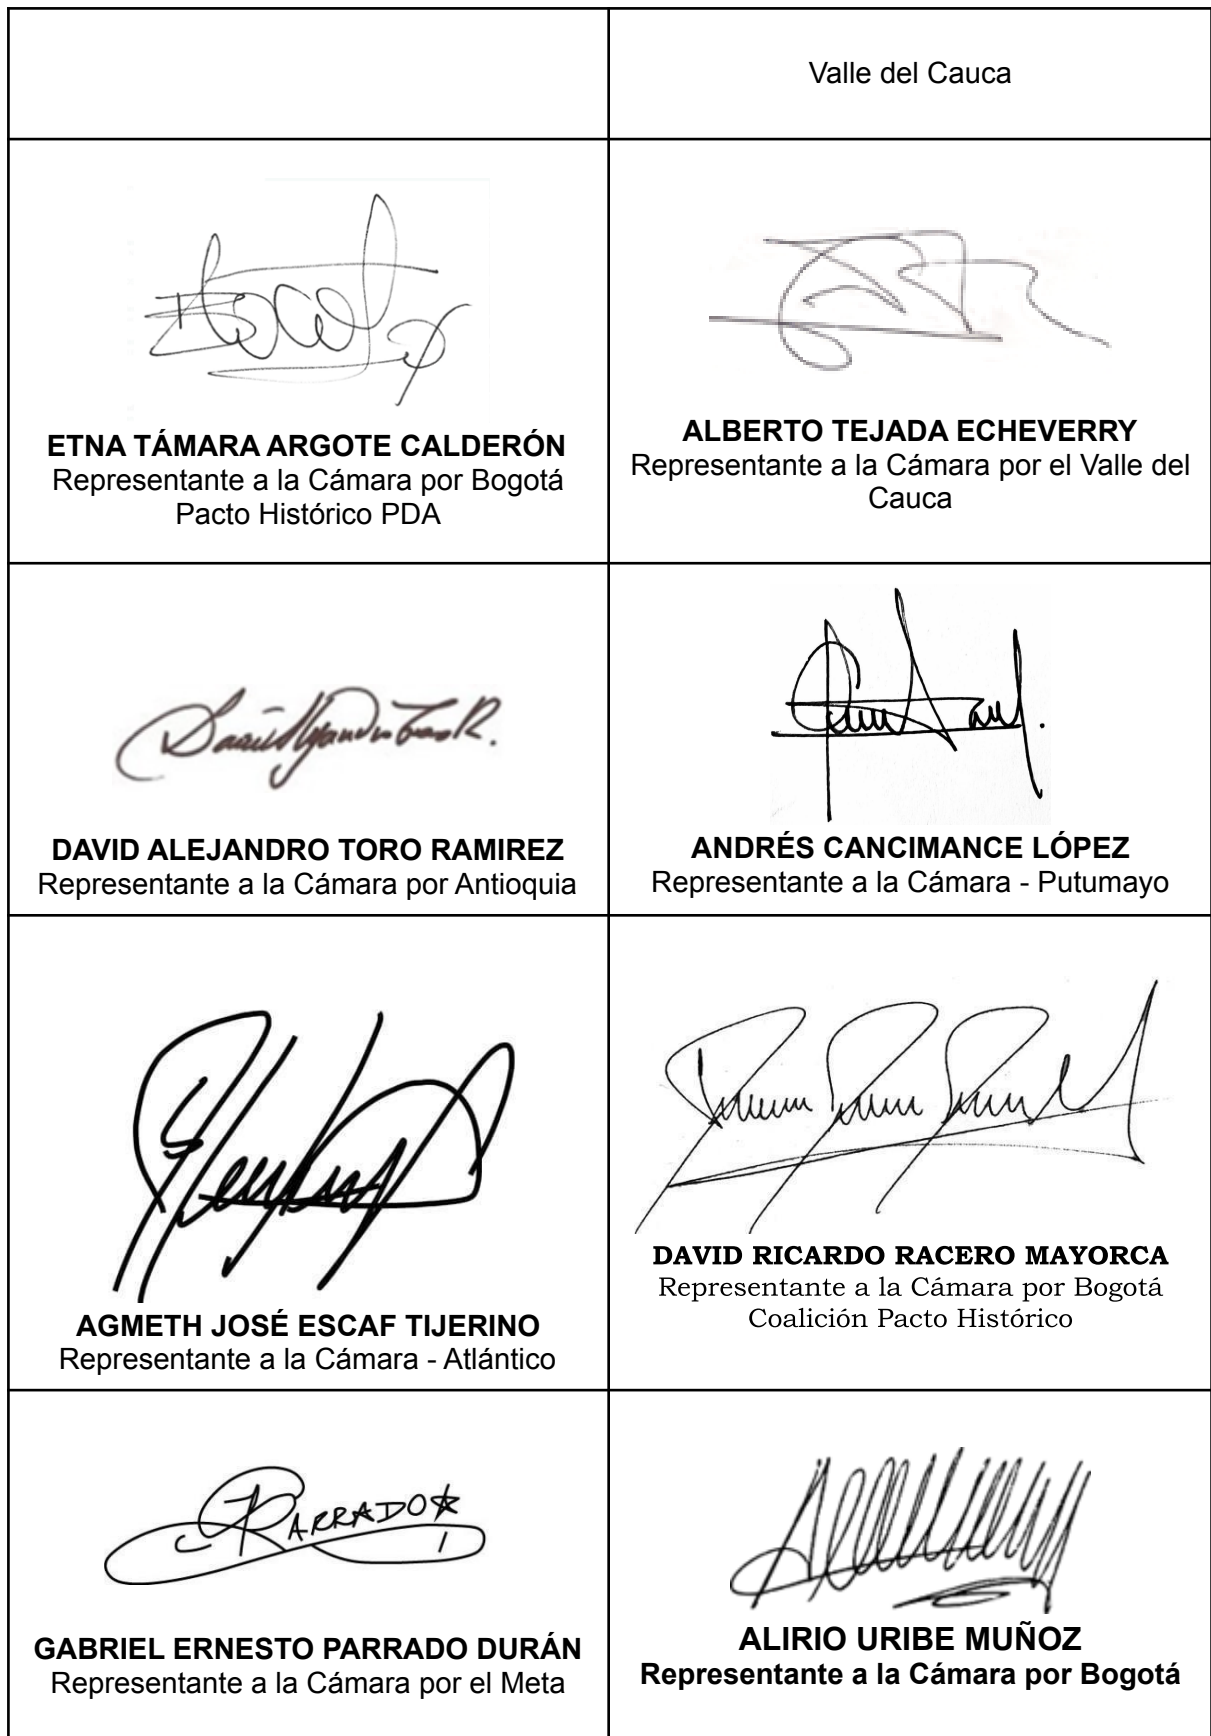 Valle del Cauca
ETNA TÁMARA ARGOTE CALDERÓN
Representante a la Cámara por Bogotá
Pacto Histórico PDA
ALBERTO TEJADA ECHEVERRY
Representante a la Cámara por el Valle del
Cauca
DAVID ALEJANDRO TORO RAMIREZ
Representante a la Cámara por Antioquia
ANDRÉS CANCIMANCE LÓPEZ
Representante a la Cámara - Putumayo
AGMETH JOSÉ ESCAF TIJERINO
Representante a la Cámara - Atlántico
DAVID RICARDO RACERO MAYORCA
Representante a la Cámara por Bogotá
Coalición Pacto Histórico
PARRADO
GABRIEL ERNESTO PARRADO DURÁN
Representante a la Cámara por el Meta
ALIRIO URIBE MUÑOZ
Representante a la Cámara por Bogotá